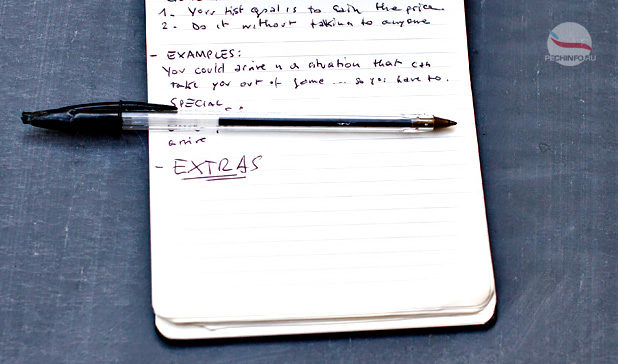 1. Your first goal is to gain the price.
2. Do it without talking to anyone
- EXAMPLES:
You could arrive in a situation that can
take you out of game ... so you have to.
SPECIAL...
arrive
- EXTRAS
PECHINFO.RU